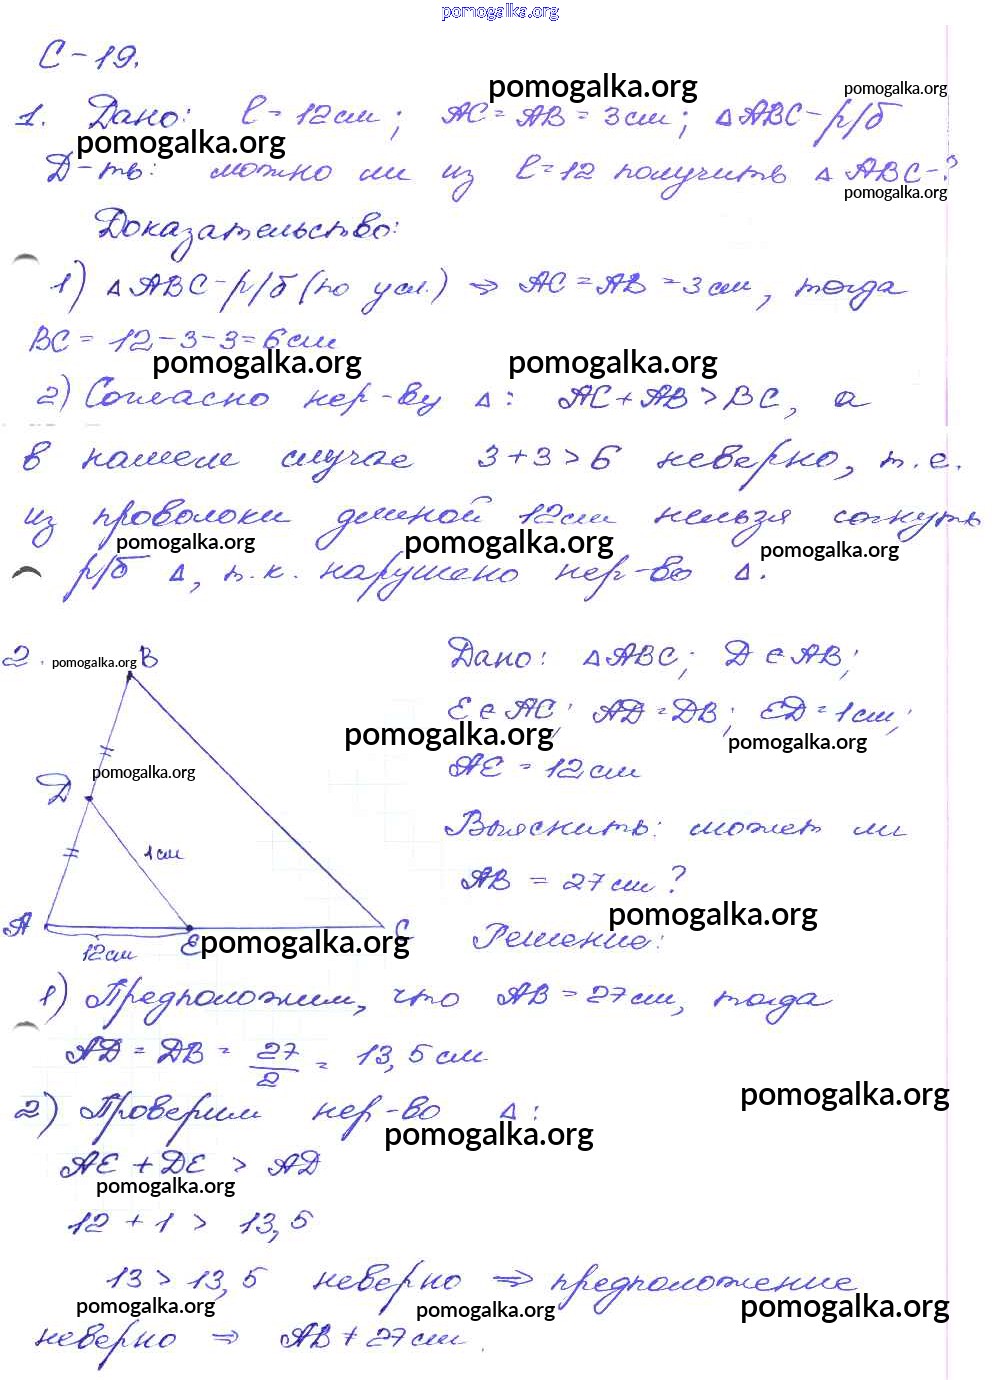 pomogalka.org
С-19.
pomogalka.org pomogalka.org
1. Дано: l = 12 см; AC = AB = 3 см; △ABC - р/б
pomogalka.org
Д-ть: можно ли из l = 12 получить △ABC-?
pomogalka.org
Доказательство:
1) △ABC - р/б (по усл.) ⇒ AC = AB = 3 см, тогда
BC = 12 - 3 - 3 = 6 см
pomogalka.org pomogalka.org
2) Согласно нер-ву △: AC + AB > BC, а
в нашем случае 3 + 3 > 6 неверно, т.е.
из проволоки длиной 12 см нельзя согнуть
pomogalka.org pomogalka.org pomogalka.org
р/б △, т.к. нарушено нер-во △.
2. pomogalka.org B
Дано: △ABC; D ∈ AB;
E ∈ AC; AD = DB; ED = 1 см;
pomogalka.org pomogalka.org
AE = 12 см
pomogalka.org
D
1 см
Выяснить: может ли
AB = 27 см?
pomogalka.org
A E C
12 см
pomogalka.org
Решение:
1) Предположим, что AB = 27 см, тогда
AD = DB = 27/2 = 13,5 см
pomogalka.org
2) Проверим нер-во △:
pomogalka.org
AE + DE > AD
pomogalka.org
12 + 1 > 13,5
13 > 13,5 неверно ⇒ предположение
pomogalka.org pomogalka.org pomogalka.org
неверно ⇒ AB ≠ 27 см.